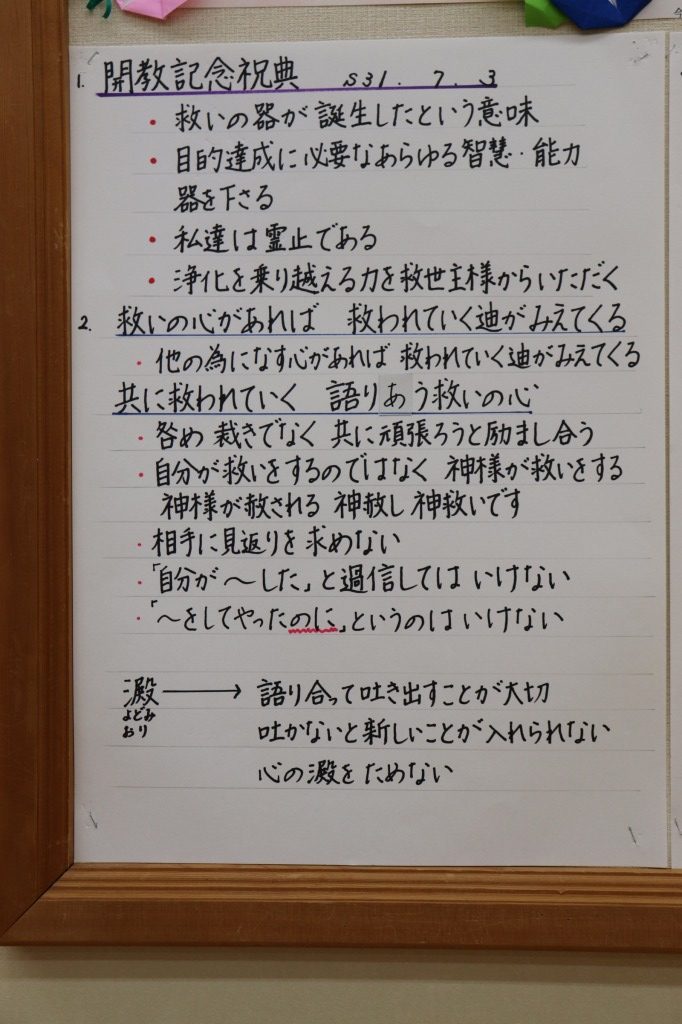 1. 開教記念祝典 S31. 7. 3
・救いの器が誕生したという意味
・目的達成に必要なあらゆる智慧・能力
器を下さる
・私達は霊止である
・浄化を乗り越える力を救世主様からいただく
2. 救いの心があれば 救われていく迪がみえてくる
・他の為になす心があれば 救われていく迪がみえてくる
共に救われていく 語りあう救いの心
・咎め 裁きでなく 共に頑張ろうと励まし合う
・自分が救いをするのではなく 神様が救いをする
神様が赦される 神赦し 神救いです
・相手に見返りを求めない
・「自分が〜した」と過信してはいけない
・「〜をしてやったのに」というのはいけない
澱 → 語り合って吐き出すことが大切
よどみ
おり 吐かないと新しいことが入れられない
心の澱をためない